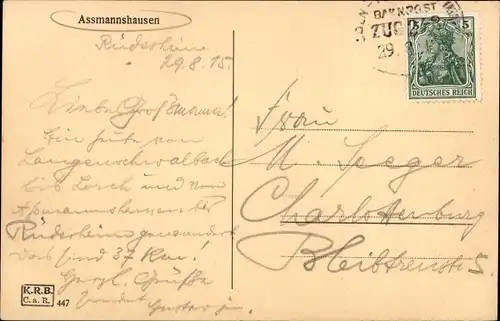 Assmannshausen
Rüdesheim
29.8.15.
Liebe Großmama!
Bin heute von
Langenschwalbach
bis Lorch und von
Assmannshausen bis
Rüdesheim gewandert
Das sind 37 Km!
Herzl. Grüße
sendet
K.R.B.
C.a.R.
447
BAHNPOST
ZUG
29.
5 5
DEUTSCHES REICH
Frau
M. Seeger
Charlottenburg
Bleibtreustr 5